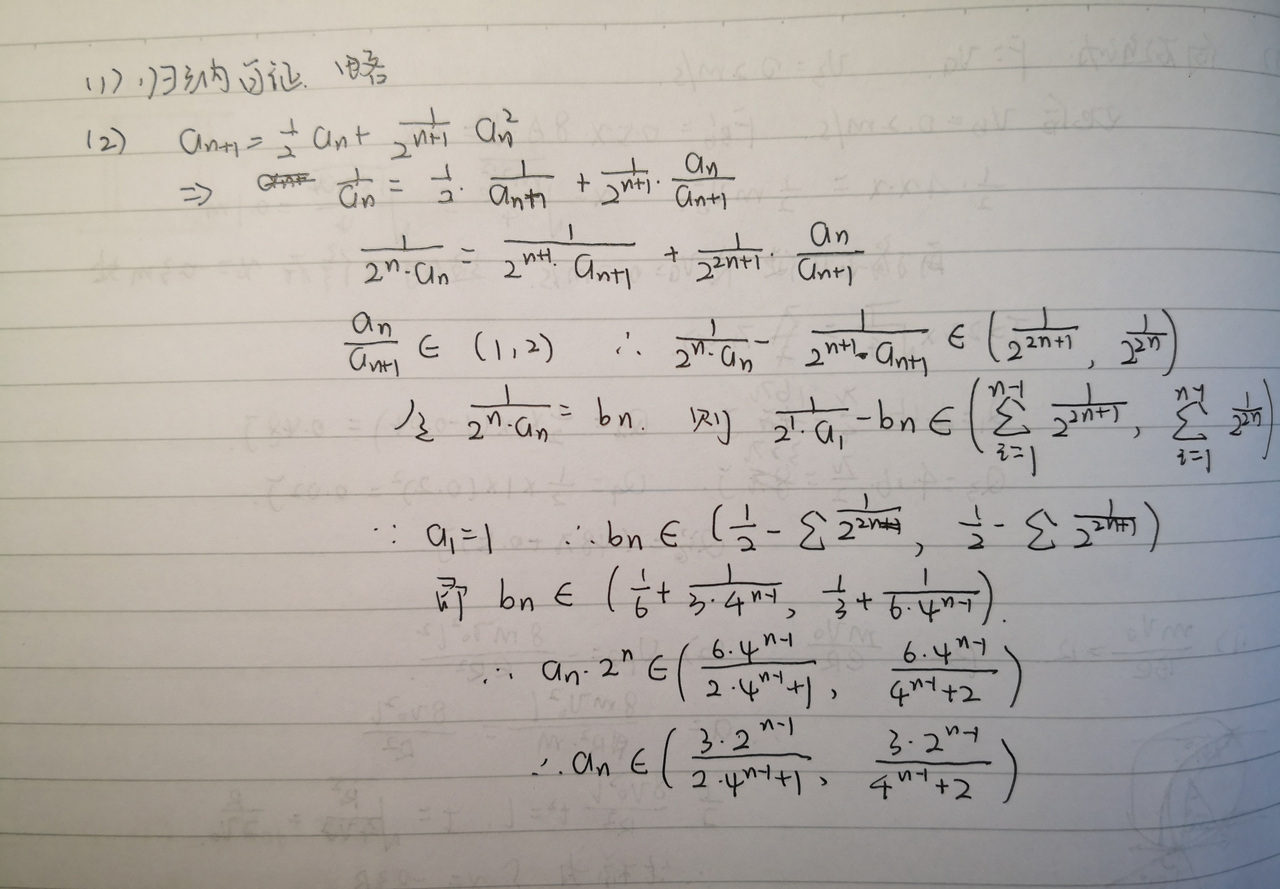 (1) 归纳可证. 略
(2) a_{n+1} = \frac{1}{2} a_n + \frac{1}{2^{n+1}} a_n^2
⇒ \frac{1}{a_n} = \frac{1}{2} · \frac{1}{a_{n+1}} + \frac{1}{2^{n+1}} · \frac{a_n}{a_{n+1}}
\frac{1}{2^n · a_n} = \frac{1}{2^{n+1} · a_{n+1}} + \frac{1}{2^{2n+1}} · \frac{a_n}{a_{n+1}}
\frac{a_n}{a_{n+1}} ∈ (1, 2) ∴ \frac{1}{2^n · a_n} - \frac{1}{2^{n+1} · a_{n+1}} ∈ (\frac{1}{2^{2n+1}}, \frac{1}{2^{2n}})
令 \frac{1}{2^n · a_n} = b_n. 则 \frac{1}{2^1 · a_1} - b_n ∈ (\sum_{i=1}^{n-1} \frac{1}{2^{2n+1}}, \sum_{i=1}^{n-1} \frac{1}{2^{2n}})
∵ a_1 = 1 ∴ b_n ∈ (\frac{1}{2} - \sum \frac{1}{2^{2n}}, \frac{1}{2} - \sum \frac{1}{2^{2n+1}})
即 b_n ∈ (\frac{1}{6} + \frac{1}{3 · 4^{n-1}}, \frac{1}{3} + \frac{1}{6 · 4^{n-1}}).
∴ a_n · 2^n ∈ (\frac{6 · 4^{n-1}}{2 · 4^{n-1} + 1}, \frac{6 · 4^{n-1}}{4^{n-1} + 2})
∴ a_n ∈ (\frac{3 · 2^{n-1}}{2 · 4^{n-1} + 1}, \frac{3 · 2^{n-1}}{4^{n-1} + 2})